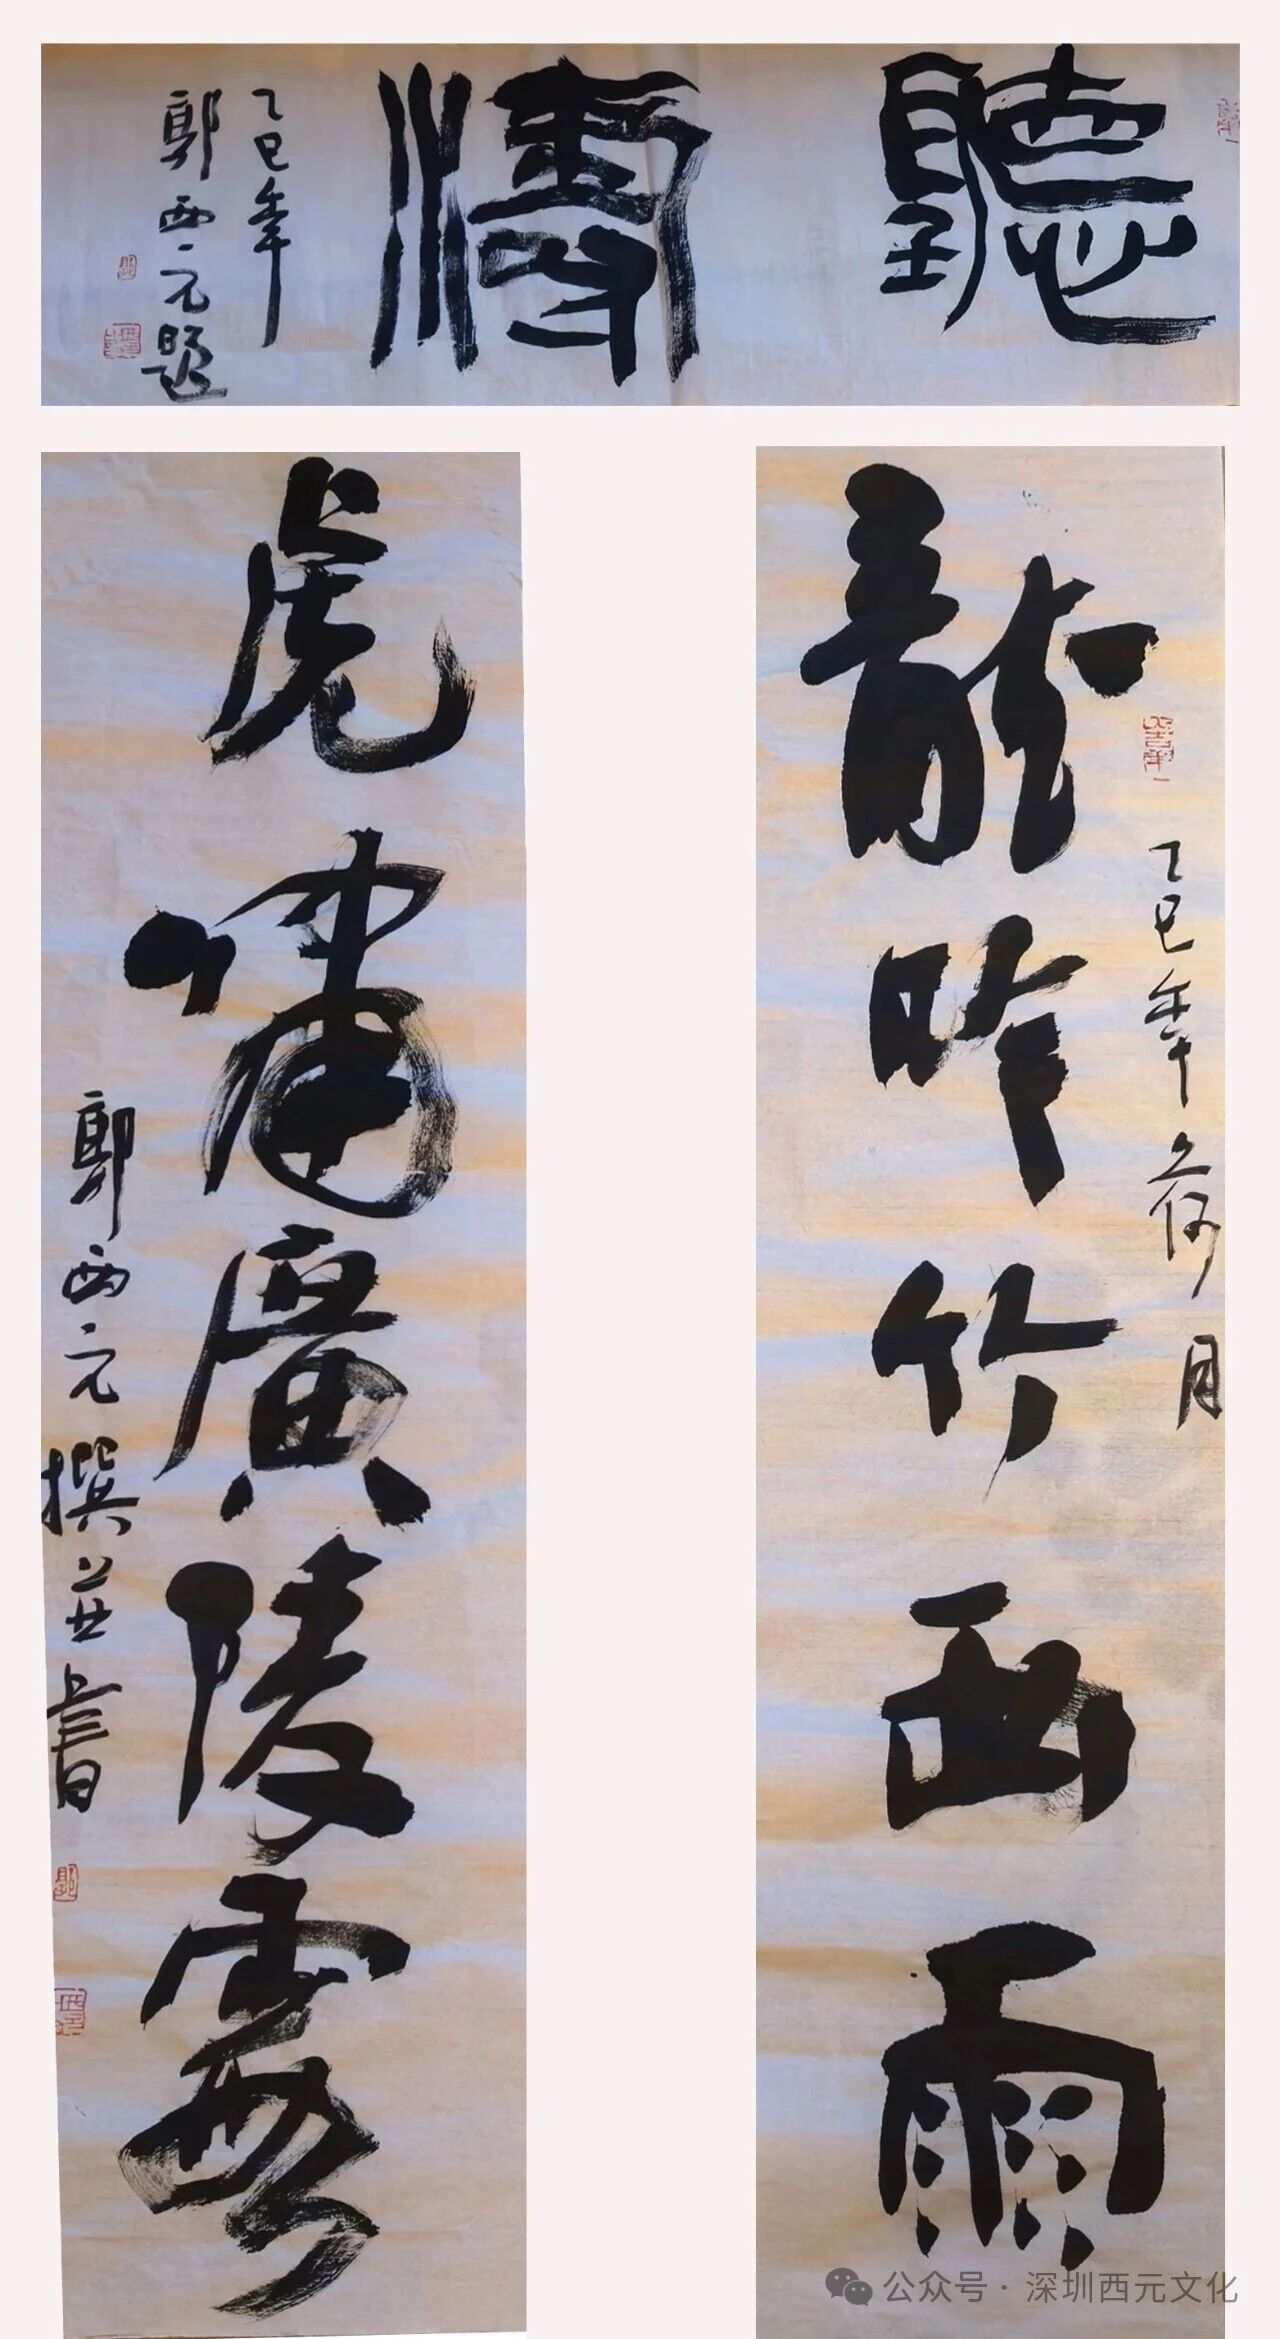 聽濤
乙巳年
郭西元題
龍吟竹西雨
乙巳年荷月
虎嘯廣陵
郭西元撰並書
公众号·深圳西元文化